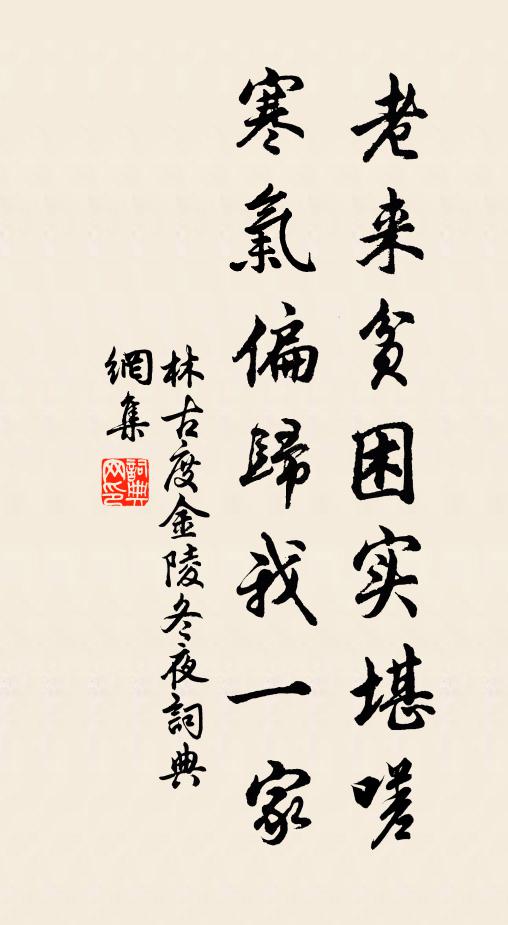 老来贫困实堪嗟
寒氣偏歸我一家
林古度金陵冬夜詞典
網集
詞典
网印